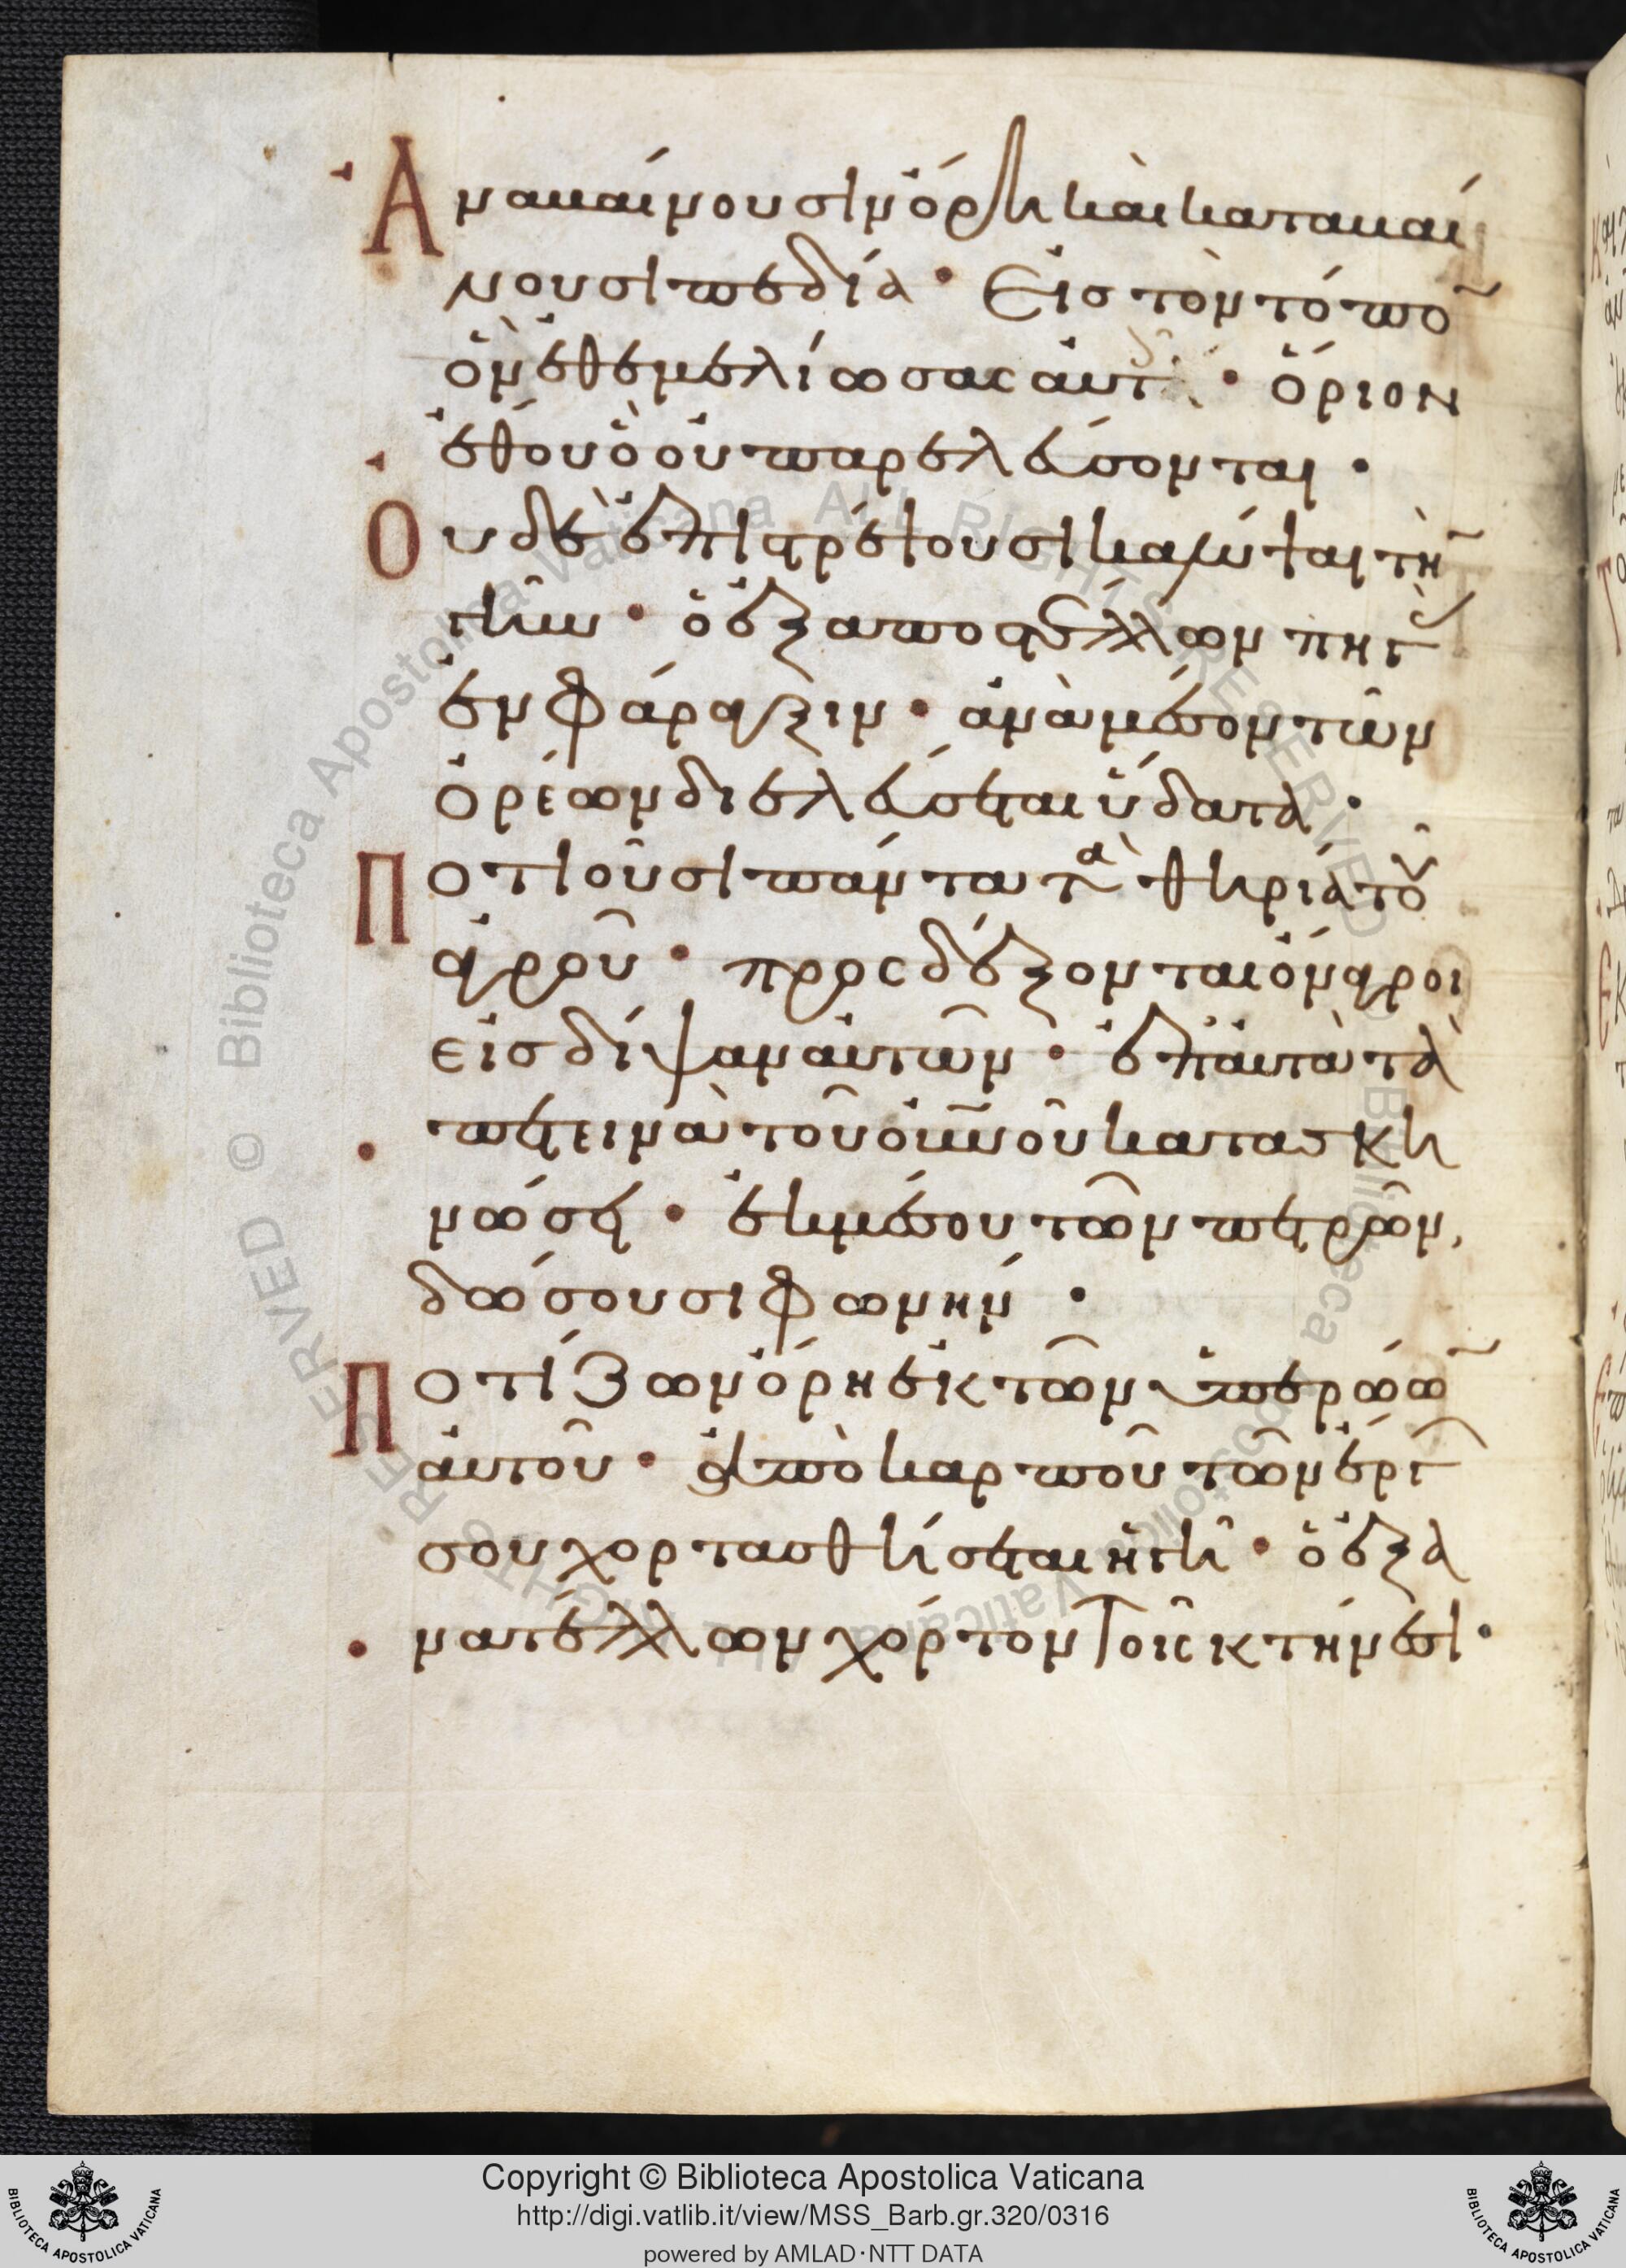 Ἀναβαίνουσιν ὄρη καὶ καταβαί
νουσι πεδία · Εἰς τὸν τόπο̅
ὃν ἐθεμελίωσας αὐτ · ὅριον
ἔθου ὃ οὐ παρελεύσονται ·
Οὐδὲ ἐπιστρέψουσι καλύψαι τὴ̅
γῆν · ὁ ἐξαποστέλλων πηγὰς
ἐν φάραγξιν · ἀναμέσον τῶν
ὀρέων διελεύσεται ὕδατα ·
Ποτιοῦσι πάντα τὰ θηρία τοῦ
ἀγροῦ · προσδέξονται ὄναγροι
εἰς δίψαν αὐτῶν · ἐπ' αὐτὰ τὰ
πετεινὰ τοῦ οὐ̅νοῦ κατασκη
νώσει · ἐκ μέσου τῶν πετρῶν,
δώσουσι φωνήν ·
Ποτίζων ὄρη ἐκ τῶν ὑπερώω̅
αὐτοῦ · ἀπὸ καρποῦ τῶν ἔργων
σου χορτασθήσεται ἡ γῆ · ὁ ἐξα
νατέλλων χόρτον τοῖς κτήνεσι ·
Copyright © Biblioteca Apostolica Vaticana
http://digi.vatlib.it/view/MSS_Barb.gr.320/0316
powered by AMLAD·NTT DATA
BIBLIOTECA APOSTOLICA VATICANA
BIBLIOTECA APOSTOLICA VATICANA